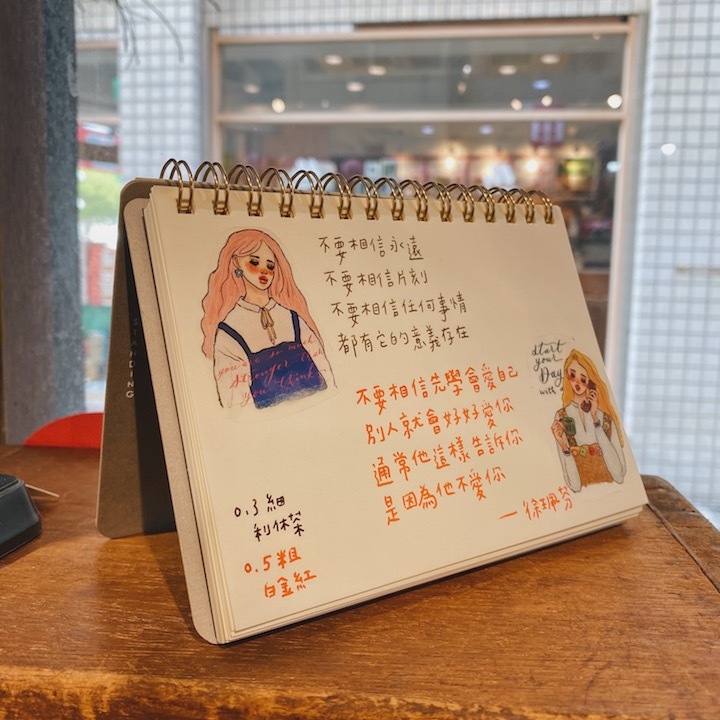 不要相信永遠
不要相信片刻
不要相信任何事情
都有它的意義存在
you are so much
stronger than
you think
start
your
Day
with
不要相信先學會愛自己
別人就會好好愛你
通常他這樣告訴你
是因為他不愛你
—徐珮芬
0.3 細
利休茶
0.5 粗
白金紅
STANDING